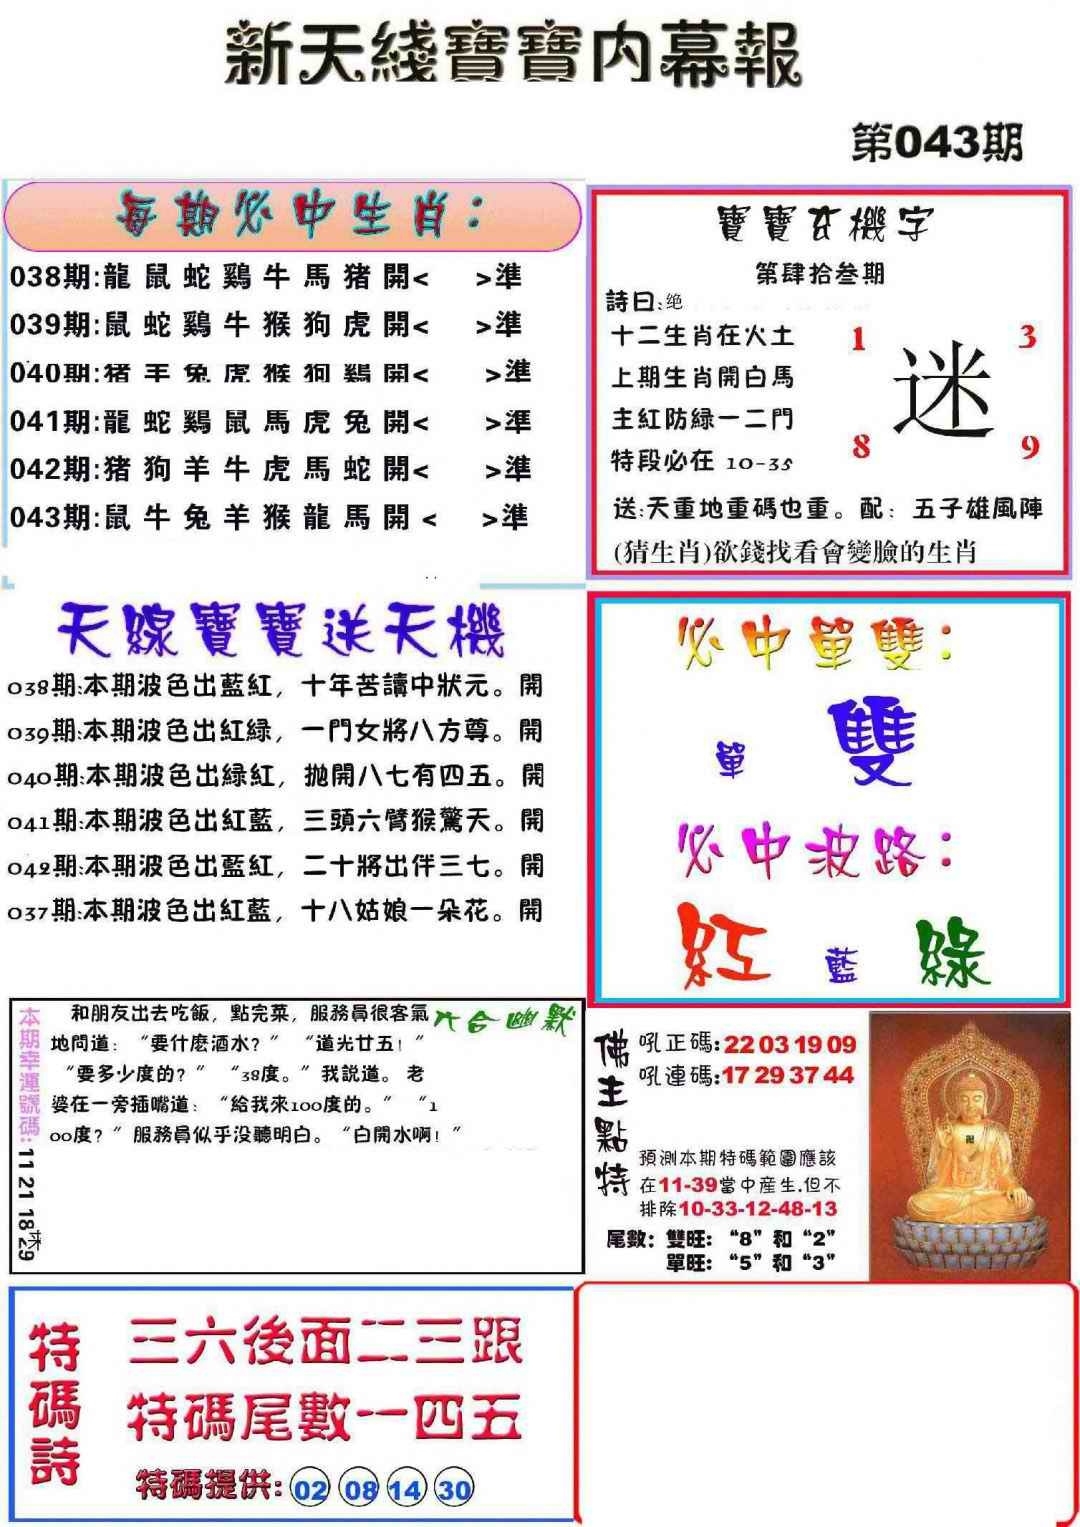 新天綫寶寶内幕報
第043期
每期必中生肖：
038期:龍鼠蛇鷄牛馬猪開< >準
039期:鼠蛇鷄牛猴狗虎開< >準
040期:猪羊兔虎猴狗鷄開< >準
041期:龍蛇鷄鼠馬虎兔開< >準
042期:猪狗羊牛虎馬蛇開< >準
043期:鼠牛兔羊猴龍馬開< >準
寶寶玄機字
第肆拾叁期
詩曰:绝
十二生肖在火土
上期生肖開白馬
主紅防緑一二門
特段必在 10-35
1 3
迷
8 9
送:天重地重碼也重。配：五子雄風陣
(猜生肖)欲錢找看會變臉的生肖
天線寶寶送天機
038期:本期波色出藍紅，十年苦讀中狀元。開
039期:本期波色出紅緑，一門女將八方尊。開
040期:本期波色出緑紅，抛開八七有四五。開
041期:本期波色出紅藍，三頭六臂猴驚天。開
042期:本期波色出藍紅，二十將出伴三七。開
037期:本期波色出紅藍，十八姑娘一朵花。開
必中單雙：
單 雙
必中波路：
紅 藍 綠
本期幸運號碼:11 21 18 29
六合幽默
和朋友出去吃飯，點完菜，服務員很客氣
地問道：“要什麽酒水？” “道光廿五！”
“要多少度的？” “38度。”我説道。老
婆在一旁插嘴道：“給我來100度的。” “1
00度？”服務員似乎没聽明白。“白開水啊！”
佛主點特
吼正碼:22 03 19 09
吼連碼:17 29 37 44
預測本期特碼範圍應該
在11-39當中産生.但不
排除10-33-12-48-13
尾數：雙旺：“8”和“2”
單旺：“5”和“3”
特碼詩
三六後面二三跟
特碼尾數一四五
特碼提供: 02 08 14 30